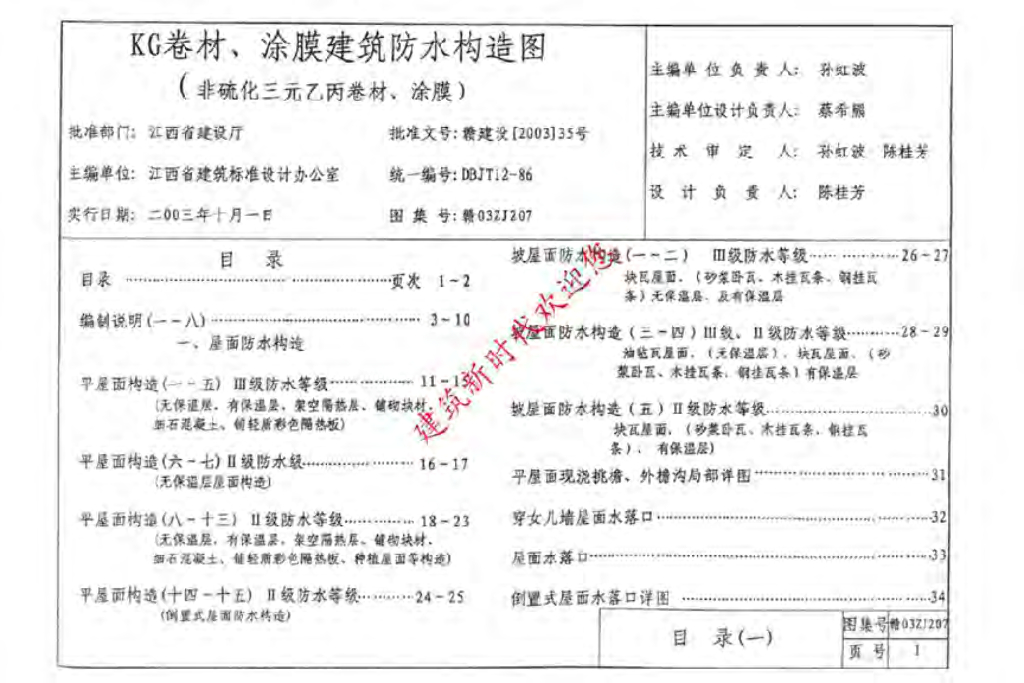 KG卷材、涂膜建筑防水构造图
(非硫化三元乙丙卷材、涂膜)
批准部门: 江西省建设厅 批准文号: 赣建设[2003]35号
主编单位: 江西省建筑标准设计办公室 统一编号: DBJT12-86
实行日期: 二00三年十月一日 图集号: 赣03ZJ207
主编单位负责人: 孙虹波
主编单位设计负责人: 蔡希熊
技术审定人: 孙虹波 陈桂芳
设计负责人: 陈桂芳
目 录
目录 ……………………………页次 1-2
编制说明(一-八) ……………………………3-10
一、屋面防水构造
平屋面构造(一-五) III级防水等级…………11-15
(无保温层、有保温层、架空隔热层、铺砌块材、
细石混凝土、铺轻质彩色隔热板)
平屋面构造(六-七)II级防水级……………16-17
(无保温层屋面构造)
平屋面构造(八-十三) II级防水等级…………18-23
(无保温层、有保温层、架空隔热层、铺砌块材、
细石混凝土、铺轻质彩色隔热板、种植屋面等构造)
平屋面构造(十四-十五) II级防水等级………24-25
(倒置式屋面防水构造)
坡屋面防水构造(一-二) III级防水等级…………26-27
块瓦屋面、(砂浆卧瓦、木挂瓦条、钢挂瓦
条)无保温层、及有保温层
坡屋面防水构造(三-四)III级、II级防水等级………28-29
油毡瓦屋面、(无保温层)、块瓦屋面、(砂
浆卧瓦、木挂瓦条、钢挂瓦条)有保温层
坡屋面防水构造(五)II级防水等级……………………30
块瓦屋面、(砂浆卧瓦、木挂瓦条、钢挂瓦
条)、有保温层)
平屋面现浇挑檐、外檐沟局部详图……………………31
穿女儿墙屋面水落口……………………………32
屋面水落口……………………………33
倒置式屋面水落口详图 ……………………………34
建筑新时代欢迎您
目 录(一)
图集号 赣03ZJ207
页 号 1